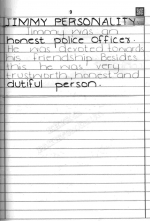 3
JIMMY PERSONALITY
Jimmy was an
honest police officer.
He was devoted towards
his friendship. Besides
this he was very
trustworth, honest and
dutiful person.